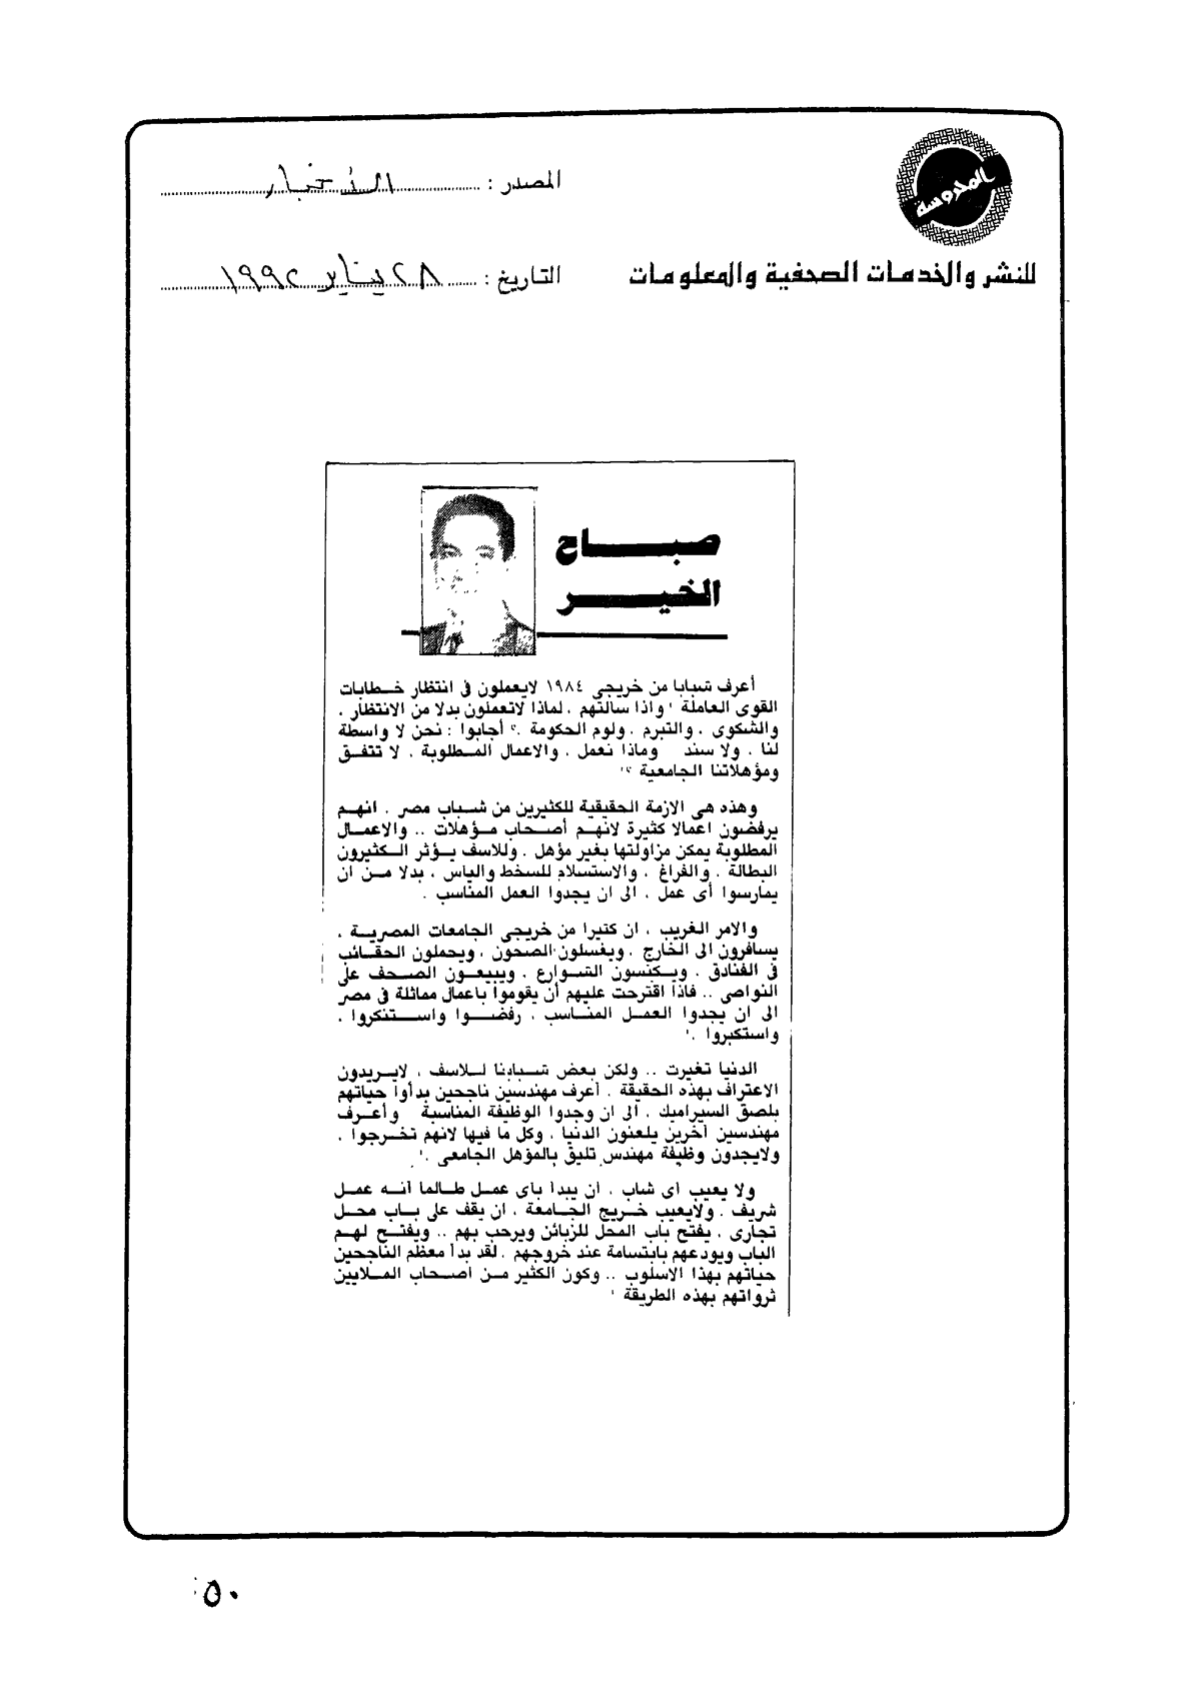 المحروسة
المصدر : الأخبار
للنشر والخدمات الصحفية والمعلومات
التاريخ : ٢٨ يناير ١٩٩٢
صباح
الخير
أعرف شبابا من خريجى ١٩٨٤ لايعملون فى انتظار خطابات
القوى العاملة ! واذا سالتهم ، لماذا لاتعملون بدلا من الانتظار ،
والشكوى ، والتبرم ، ولوم الحكومة .؟ أجابوا : نحن لا واسطة
لنا ، ولا سند وماذا نعمل ، والاعمال المطلوبة ، لا تتفق
ومؤهلاتنا الجامعية ؟!
وهذه هى الازمة الحقيقية للكثيرين من شباب مصر ، انهم
يرفضون اعمالا كثيرة لانهم أصحاب مؤهلات .. والاعمال
المطلوبة يمكن مزاولتها بغير مؤهل . وللاسف يؤثر الكثيرون
البطالة ، والفراغ ، والاستسلام للسخط والياس ، بدلا من ان
يمارسوا أى عمل ، الى ان يجدوا العمل المناسب .
والامر الغريب ، ان كثيرا من خريجى الجامعات المصرية ،
يسافرون الى الخارج ، ويغسلون الصحون ، ويحملون الحقائب
فى الفنادق ، ويكنسون الشوارع ، ويبيعون الصحف على
النواصى .. فاذا اقترحت عليهم أن يقوموا باعمال مماثلة فى مصر
الى ان يجدوا العمل المناسب ، رفضوا واستنكروا ،
واستكبروا .!
الدنيا تغيرت .. ولكن بعض شبابنا للاسف ، لايريدون
الاعتراف بهذه الحقيقة . أعرف مهندسين ناجحين بدأوا حياتهم
بلصق السيراميك ، الى ان وجدوا الوظيفة المناسبة وأعرف
مهندسين آخرين يلعنون الدنيا ، وكل ما فيها لانهم تخرجوا ،
ولايجدون وظيفة مهندس تليق بالمؤهل الجامعى .!
ولا يعيب أى شاب ، أن يبدأ بأى عمل طالما أنه عمل
شريف . ولايعيب خريج الجامعة ، ان يقف على باب محل
تجارى ، يفتح باب المحل للزبائن ويرحب بهم .. ويفتح لهم
الباب ويودعهم بابتسامة عند خروجهم . لقد بدأ معظم الناجحين
حياتهم بهذا الاسلوب .. وكون الكثير من اصحاب الملايين
ثرواتهم بهذه الطريقة !
٥٠